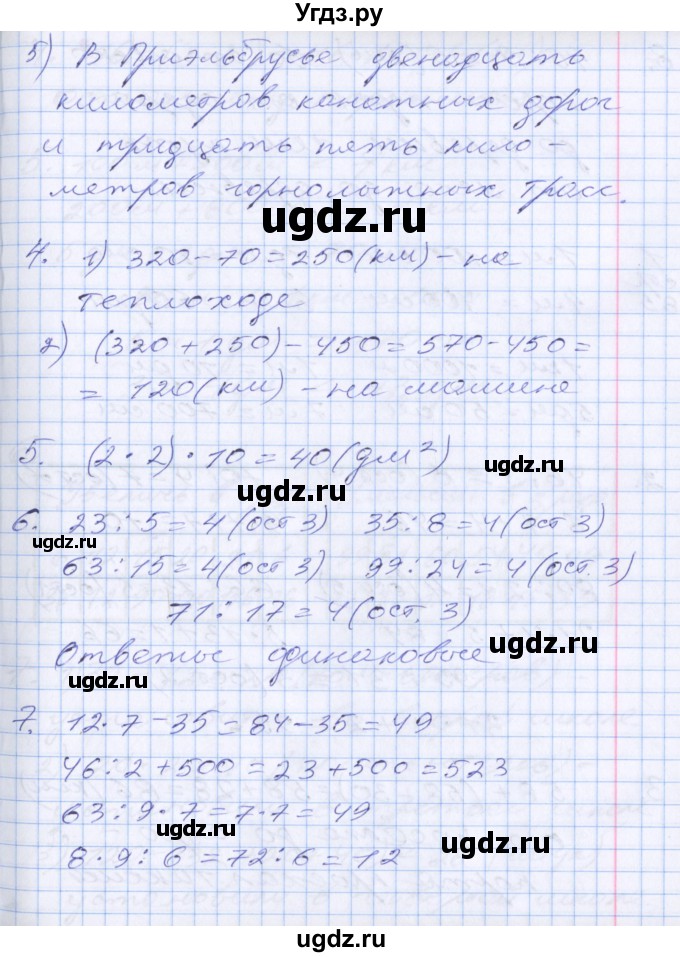 Угдз.ру
5) В Приэльбрусье двенадцать
километров канатных дорог
и тридцать пять кило-
метров горнолыжных трасс.
ugdz.ru
4. 1) 320-70=250(км)-на
теплоходе
ugdz.ru
2) (320+250)-450=570-450=
=120(км)-на машине
ugdz.ru
5. (2·2)·10=40(дм²)
ugdz.ru
ugdz.ru
6. 23:5=4(ост 3) 35:8=4(ост 3)
ugdz.ru
63:15=4(ост 3) 99:24=4(ост. 3)
71:17=4(ост. 3)
ugdz.ru
Ответы одинаковые
ugdz.ru
7. 12·7-35=84-35=49
46:2+500=23+500=523
63:9·7=7·7=49
ugdz.ru
ugdz.ru
8·9:6=72:6=12
ugdz.ru